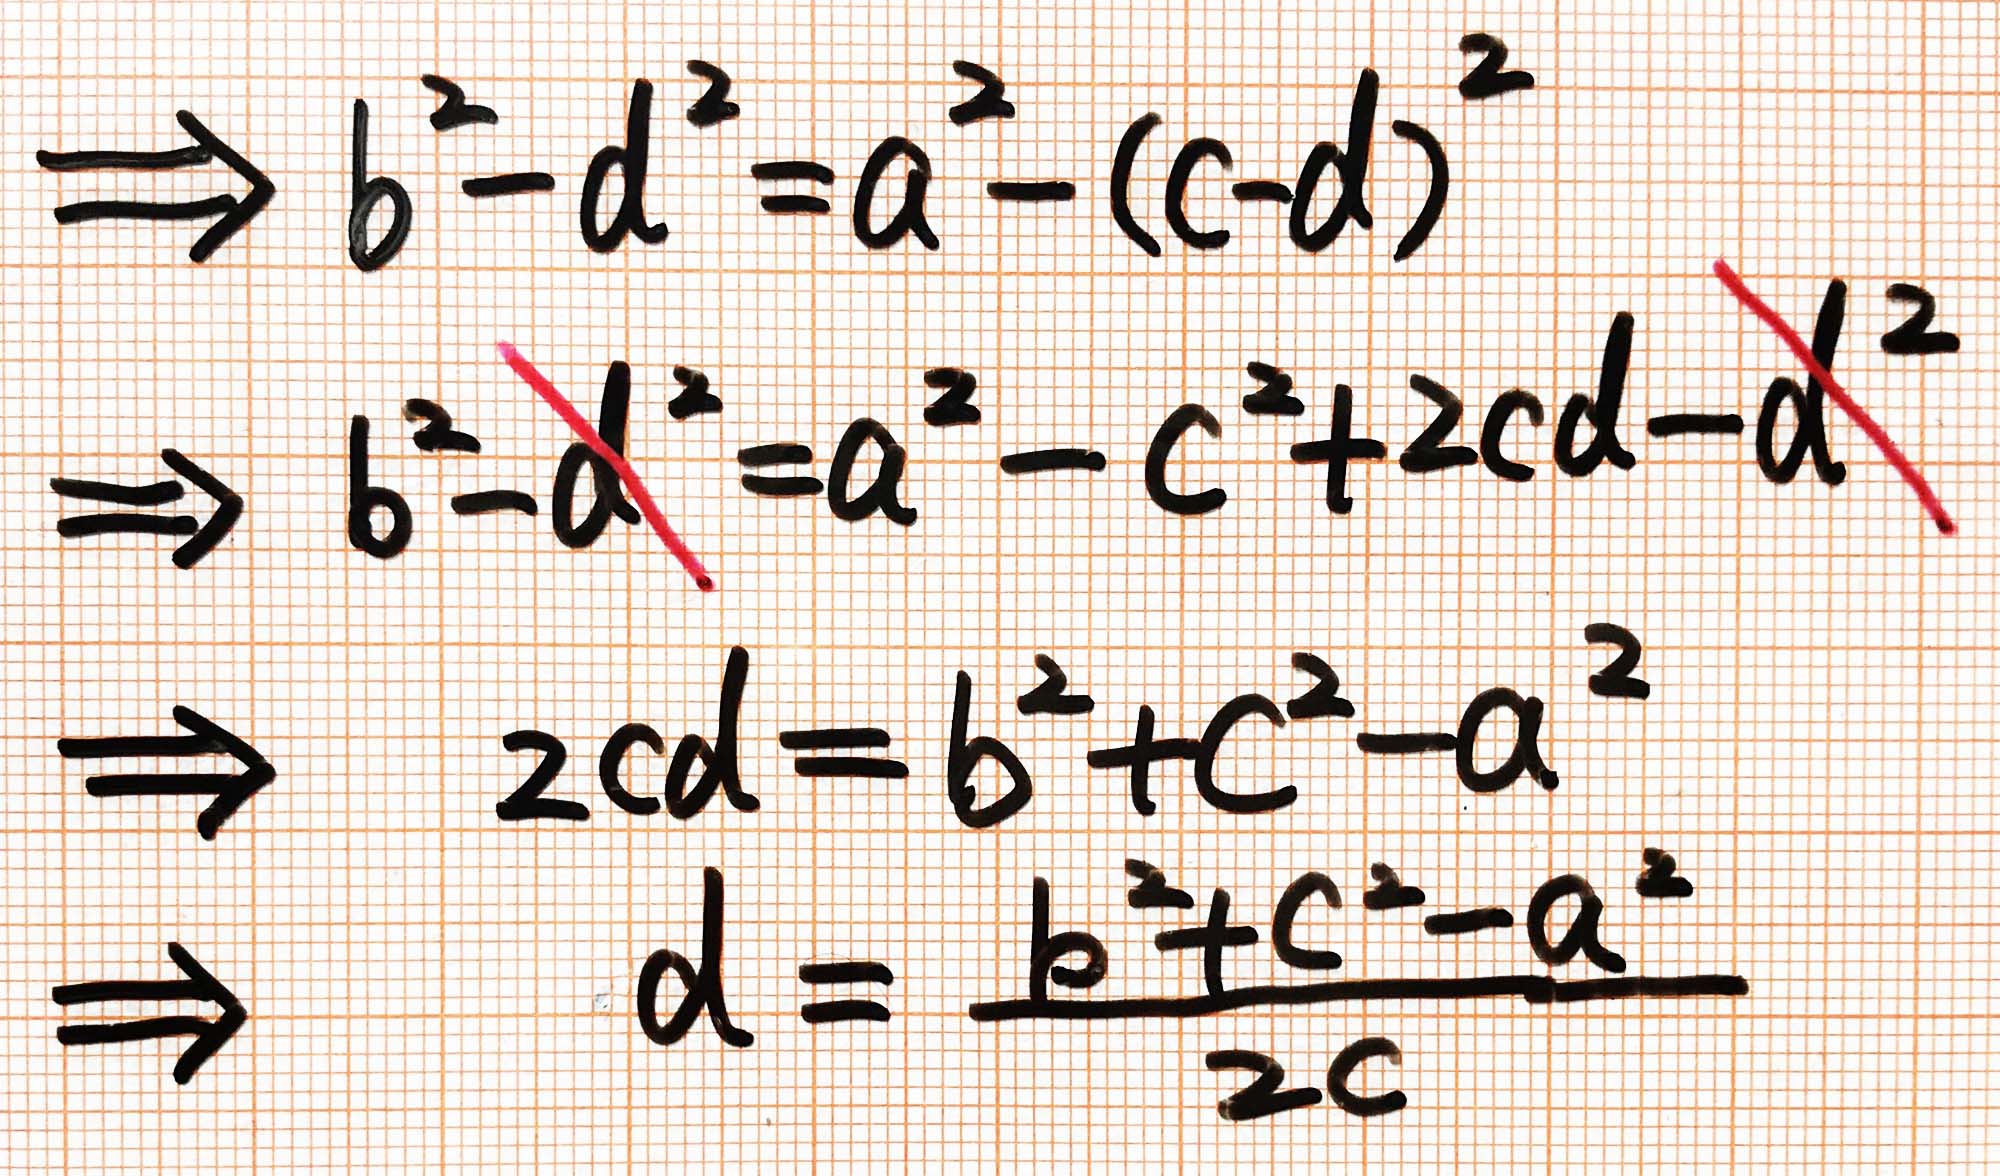 ⇒ b² - d² = a² - (c-d)²
⇒ b² - d² = a² - c² + 2cd - d²
⇒ 2cd = b² + c² - a²
⇒ d = \frac{b² + c² - a²}{2c}